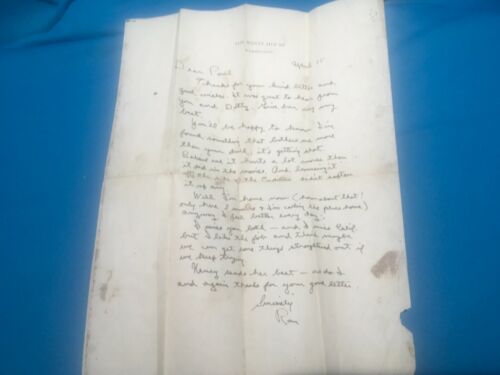 THE WHITE HOUSE
WASHINGTON
April 15
Dear Paul
Thanks for your kind letter and
good wishes. It was great to hear from
you and Dotty. Give her my very
best.
You'll be happy to know I've
found something that bothers me more
than your dunk, it's getting shot.
Believe me it hurts a lot more than
it did in the movies. And having it
the
it any.
Well I'm home now (how about that!
only here 3 months & I'm calling the place home)
anyway I feel better every day.
I miss you both – and I miss Calif.
but I like the job and think maybe
we can get some things straightened out if
we keep trying.
Nancy sends her best – as do I
and again thanks for your good letter.
Sincerely
Ron